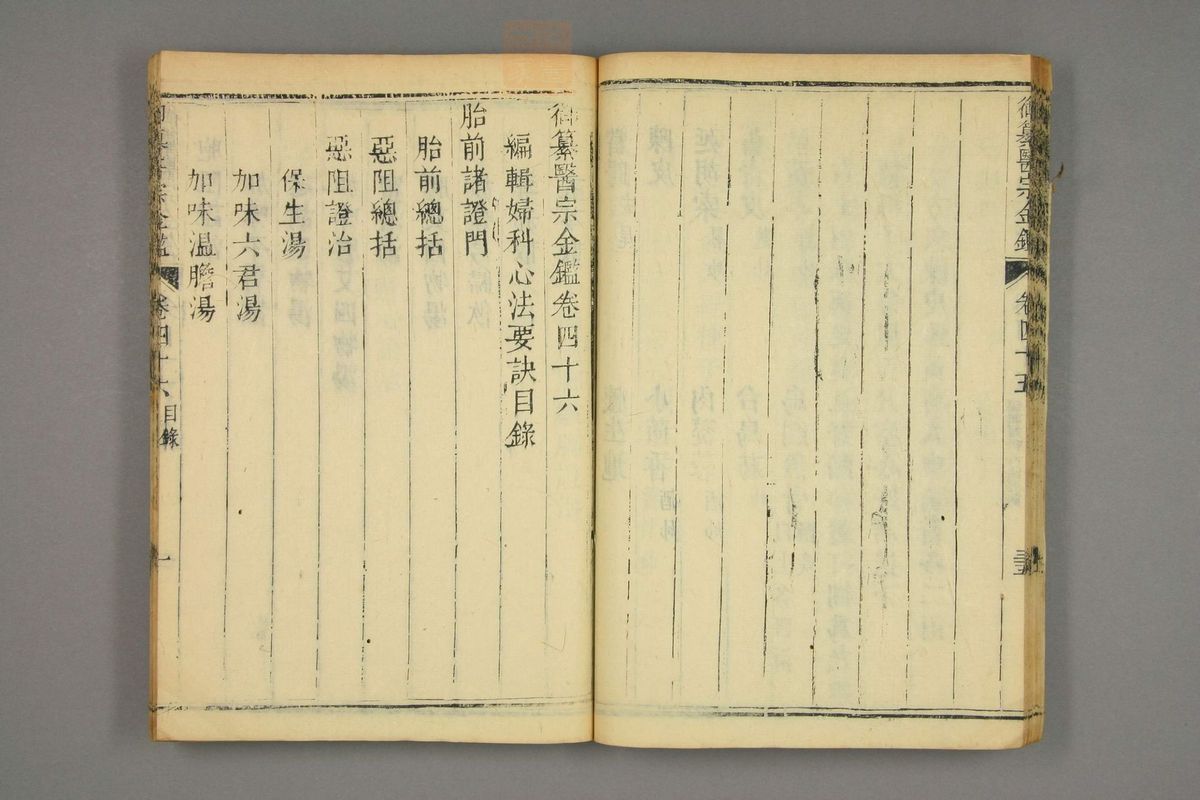 御纂醫宗金鑑
卷四十五
御纂醫宗金鑑卷四十六
編輯婦科心法要訣目錄
胎前諸證門
胎前總括
惡阻總括
惡阻證治
保生湯
加味六君湯
加味温膽湯
卷四十六
目錄
一